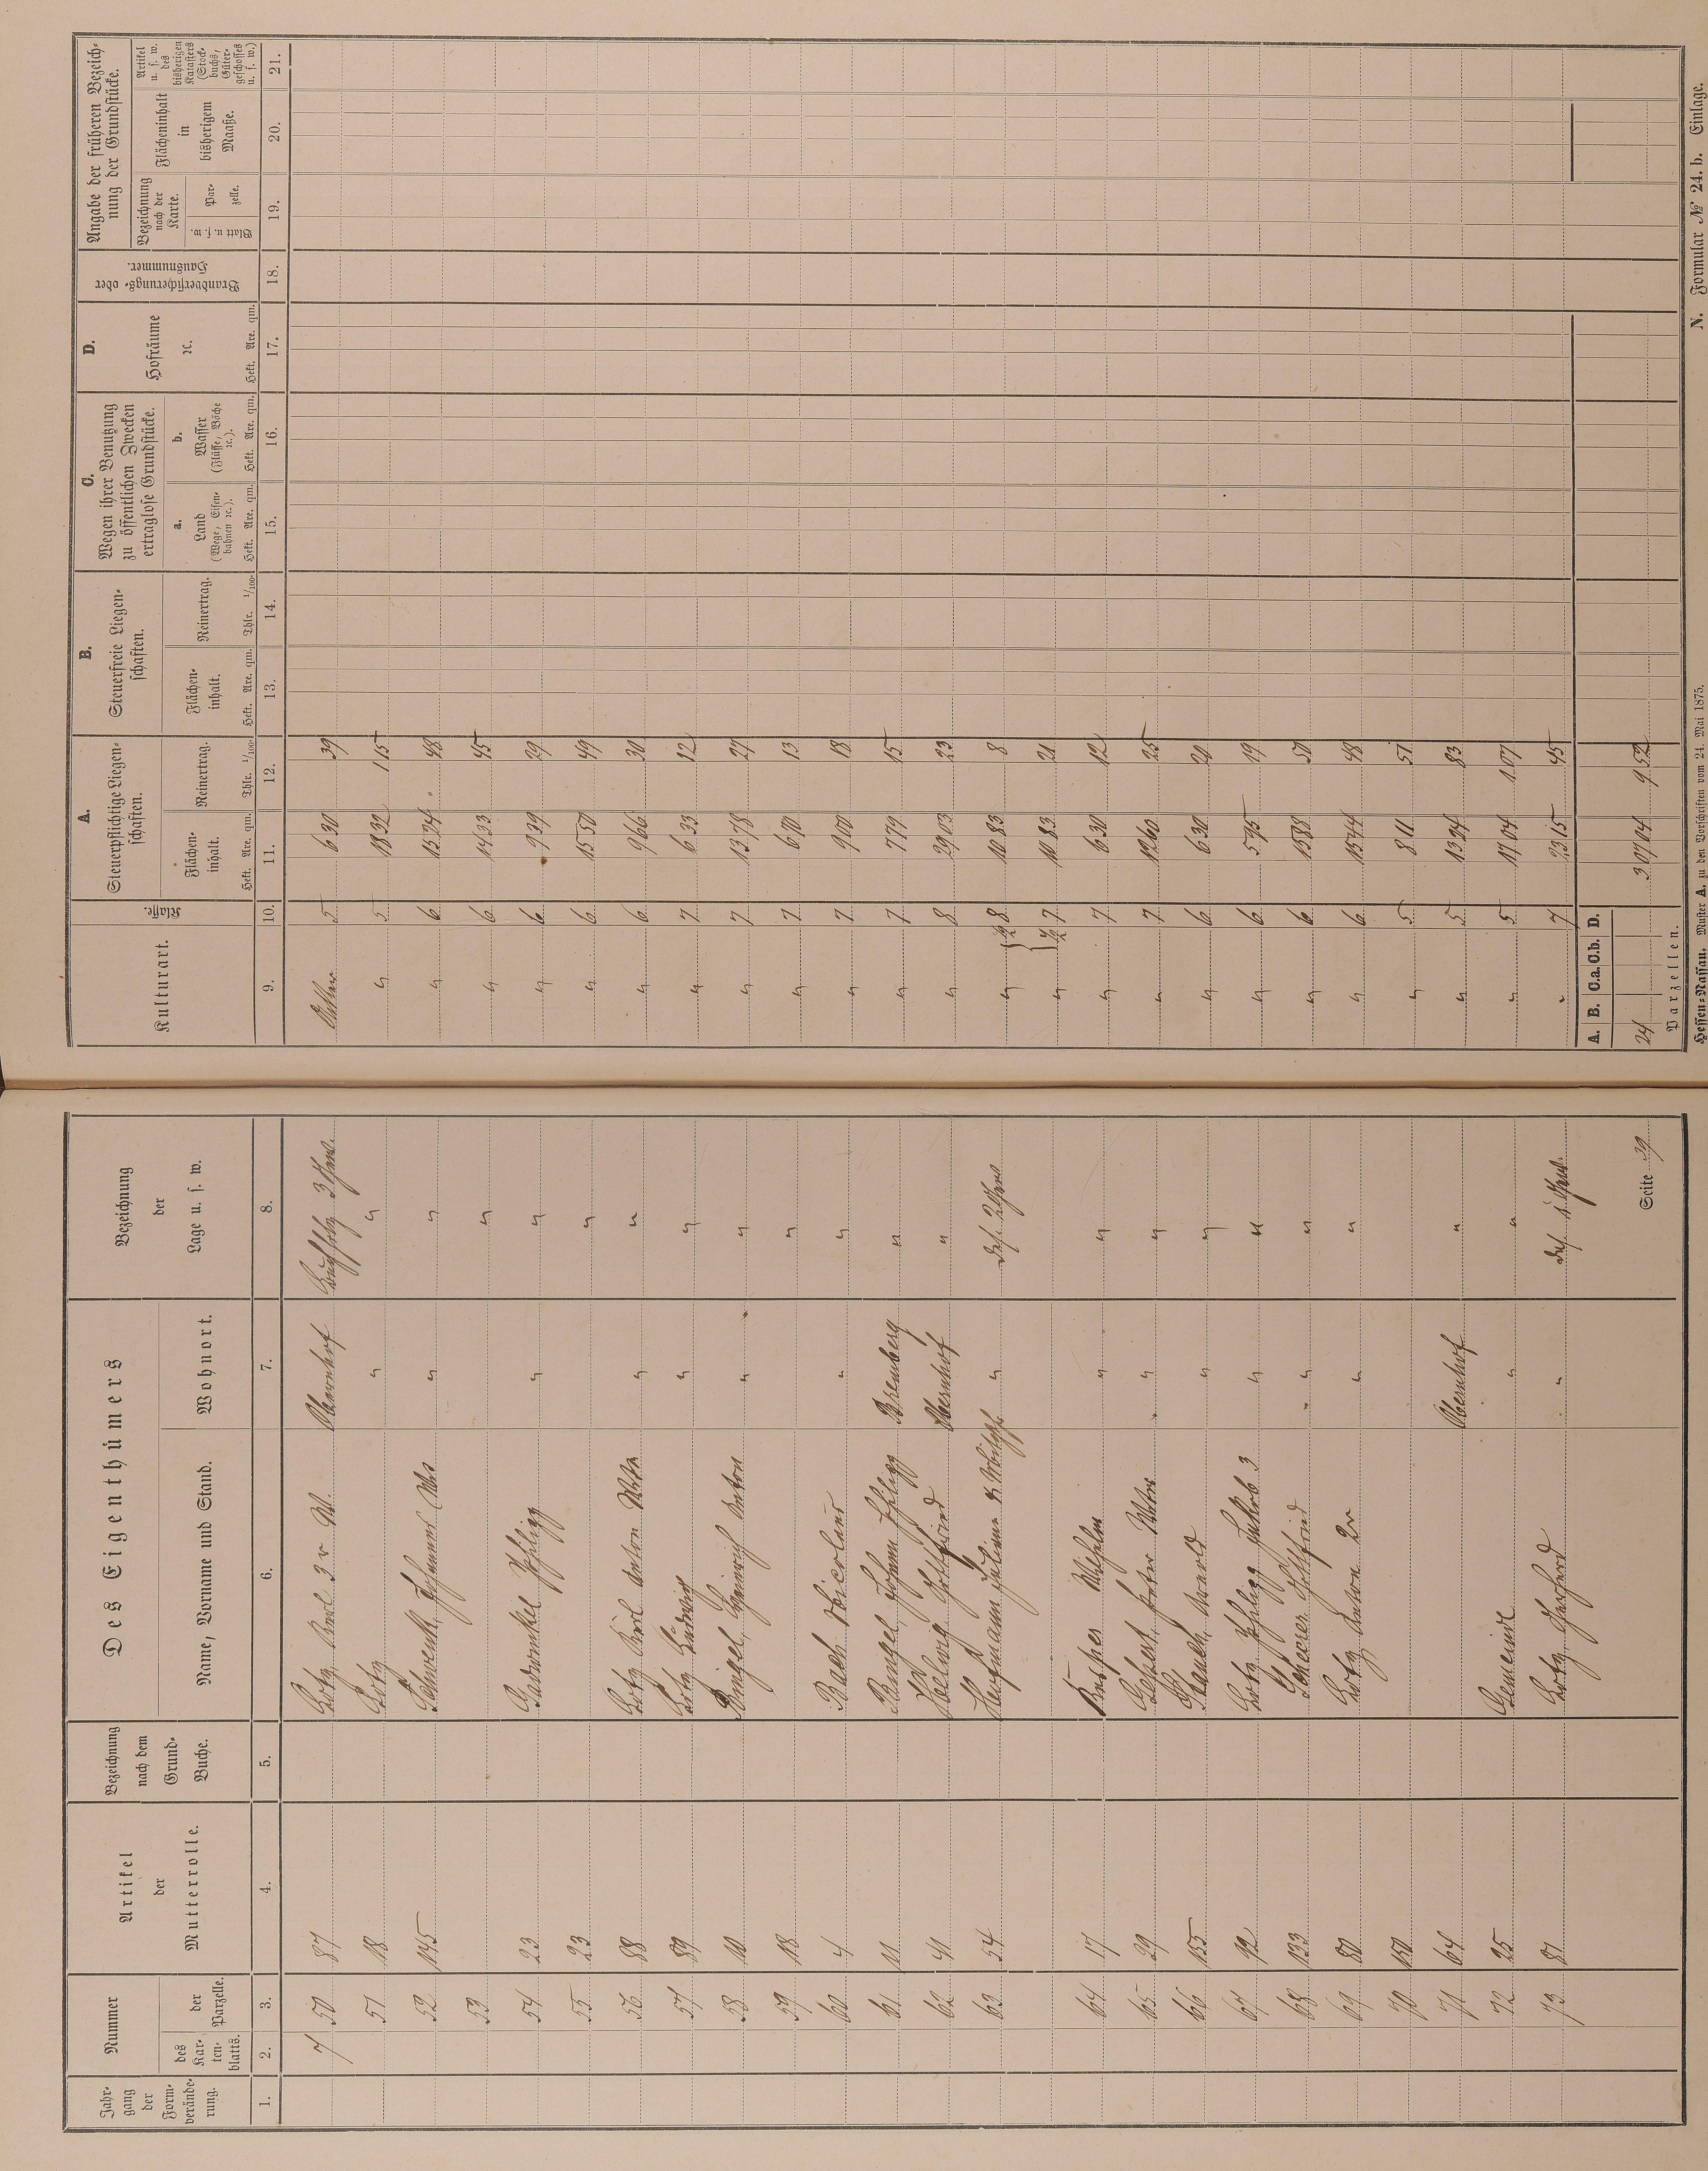 Jahr-
gang
der
Form-
verände-
rung.
Nummer
des
Kar-
ten-
blatts.
der
Parzelle.
Artikel
der
Mutterrolle.
Bezeichnung
nach dem
Grund-
Buche.
Des Eigenthümers
Name, Vorname und Stand.
Wohnort.
Bezeichnung
der
Lage u. s. w.
1. 2. 3. 4. 5. 6. 7. 8.
7 50 87 Lotz, Karl 3r Obernhof 3 Gew.
51 18 Lotz " "
52 145 Schwenk, Johannes " "
53 "
54 23 Philipp " "
55 23 "
56 88 Lotz Karl Anton " "
57 89 Lotz Ludwig " "
58 10 Bingel, Heinrich Anton " "
59 18 "
60 4 Bach Nicolaus " "
61 11 Bingel Johann Philipp "
62 41 Helwig Gottfried Obernhof "
63 54 Hofmann " das. 2 Gew
64 17 Wilhelm " "
65 29 Peter " "
66 155 " "
67 92 Lotz Philipp Jakob 3 " "
68 133 Scherer Gottfried " "
69 80 Lotz Anton 2r " "
70 150
71 64 Obernhof "
72 25 Gemeinde " "
73 81 Lotz, Gerhard " das. 1 Gew.
Seite 39
Kulturart.
Klasse.
A.
Steuerpflichtige Liegen-
schaften.
Flächen-
inhalt.
Hekt. Are. qm.
Reinertrag.
Thlr. 1/100.
B.
Steuerfreie Liegen-
schaften.
Flächen-
inhalt.
Hekt. Are. qm.
Reinertrag.
Thlr. 1/100.
C.
Wegen ihrer Benutzung
zu öffentlichen Zwecken
ertraglose Grundstücke.
a.
Land
(Wege, Eisen-
bahnen ꝛc.).
Hekt. Are. qm.
b.
Wasser
(Flüsse, Bäche
ꝛc.).
Hekt. Are. qm.
D.
Hofräume
ꝛc.
Hekt. Are. qm.
Brandversicherungs- oder
Hausnummer.
Angabe der früheren Bezeich-
nung der Grundstücke.
Bezeichnung
nach der
Karte.
Blatt u. s. w.
Par-
zelle.
Flächeninhalt
in
bisherigem
Maaße.
Artikel
u. s. w.
des
bisherigen
Katasters
(Stock-
buchs,
Güter-
geschosses
u. s. w.)
9. 10. 11. 12. 13. 14. 15. 16. 17. 18. 19. 20. 21.
Acker 5 6 30 39
" 5 18 32 1 15
" 6 15 24 48
" 6 14 33 45
" 6 9 39 29
" 6 15 50 49
" 6 9 66 30
" 7 6 33 12
" 7 13 78 27
" 7 6 70 13
" 7 9 00 18
" 7 7 79 15
" 8 29 03 23
" 8 10 83 8
" 7 10 83 21
" 7 6 30 12
" 7 12 60 25
" 6 6 30 20
" 6 5 95 19
" 6 15 88 50
" 6 15 44 48
" 5 8 11 51
" 5 13 04 83
" 5 17 04 1 07
" 7 23 15 45
A. B. C.a. C.b. D.
24 3 07 04 9 52
Parzellen.
Hessen-Nassau. Muster A. zu den Vorschriften vom 24. Mai 1875.
N. Formular № 24. b. Einlage.